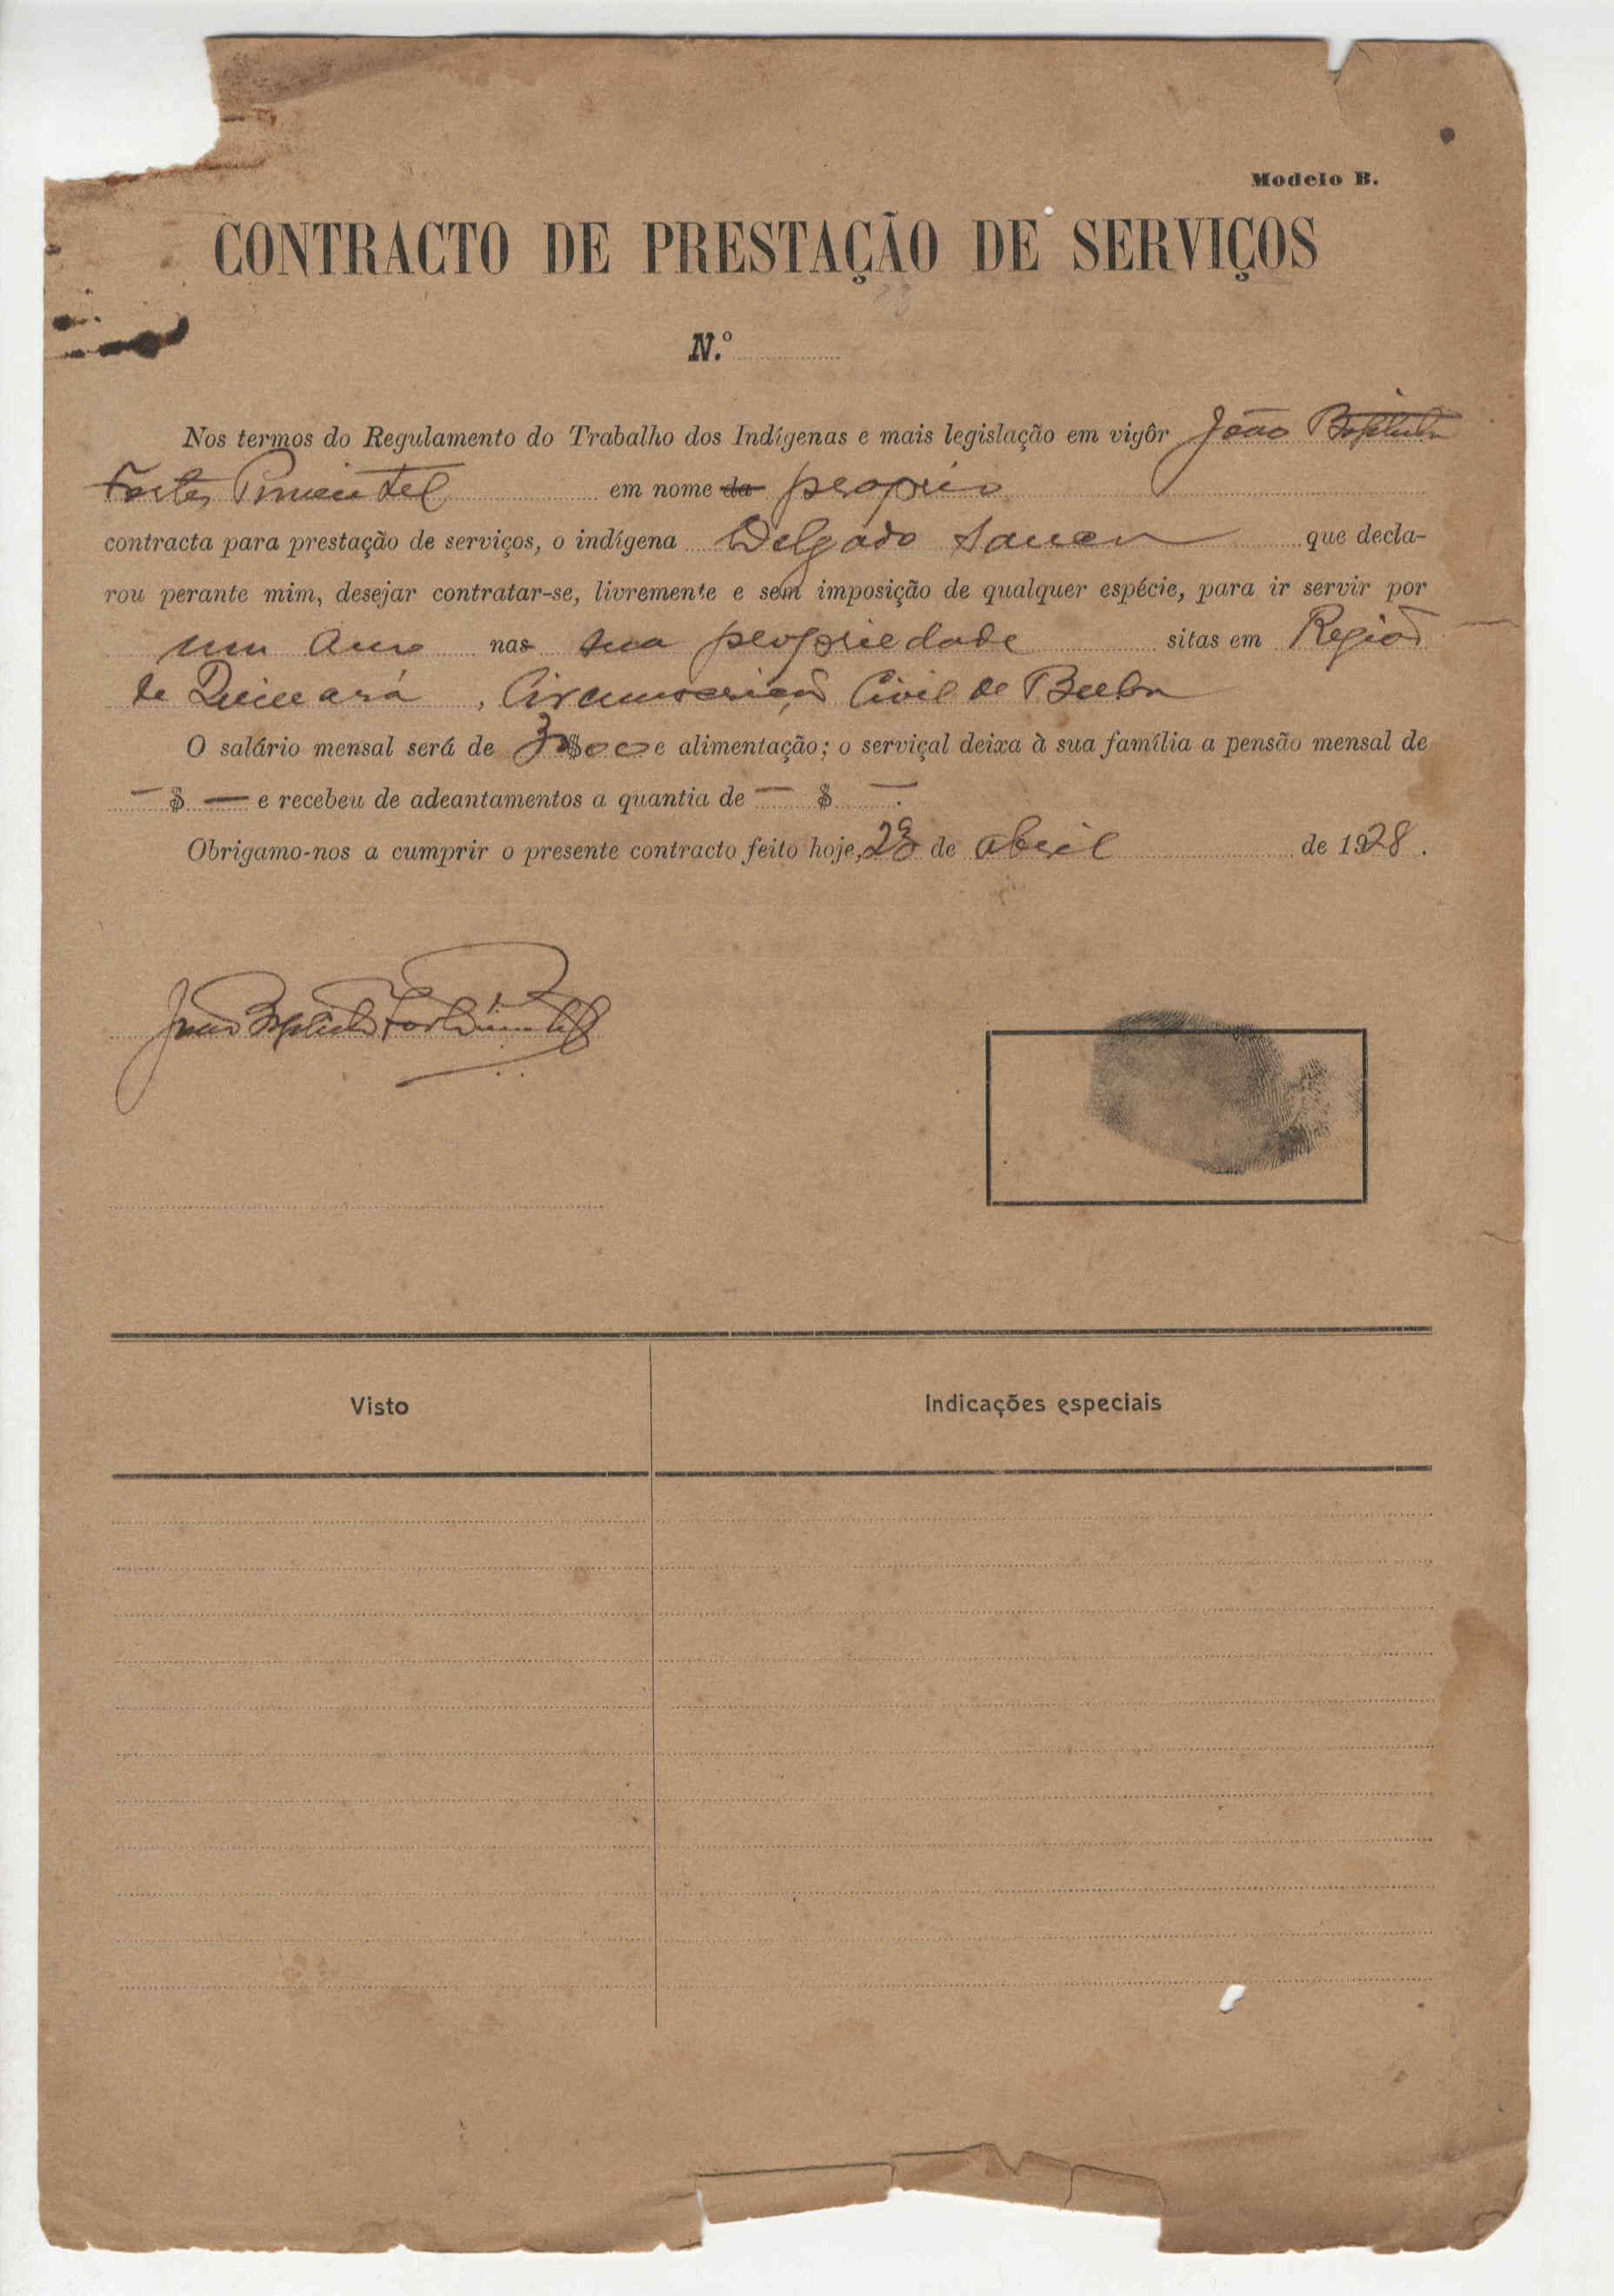 Modelo B.
CONTRACTO DE PRESTAÇÃO DE SERVIÇOS
N.º
Nos termos do Regulamento do Trabalho dos Indígenas e mais legislação em vigôr João Baptista
Fortes Pimentel em nome da proprio
contracta para prestação de serviços, o indígena Delgado que decla-
rou perante mim, desejar contratar-se, livremente e sem imposição de qualquer espécie, para ir servir por
um ano nas sua propriedade sitas em Região
de , Circumscrição Civil de Buba
O salário mensal será de $00 e alimentação; o serviçal deixa à sua família a pensão mensal de
— $ — e recebeu de adeantamentos a quantia de — $ — .
Obrigamo-nos a cumprir o presente contracto feito hoje, 23 de Abril de 1928.
João Baptista Fortes Pimentel
Visto Indicações especiais